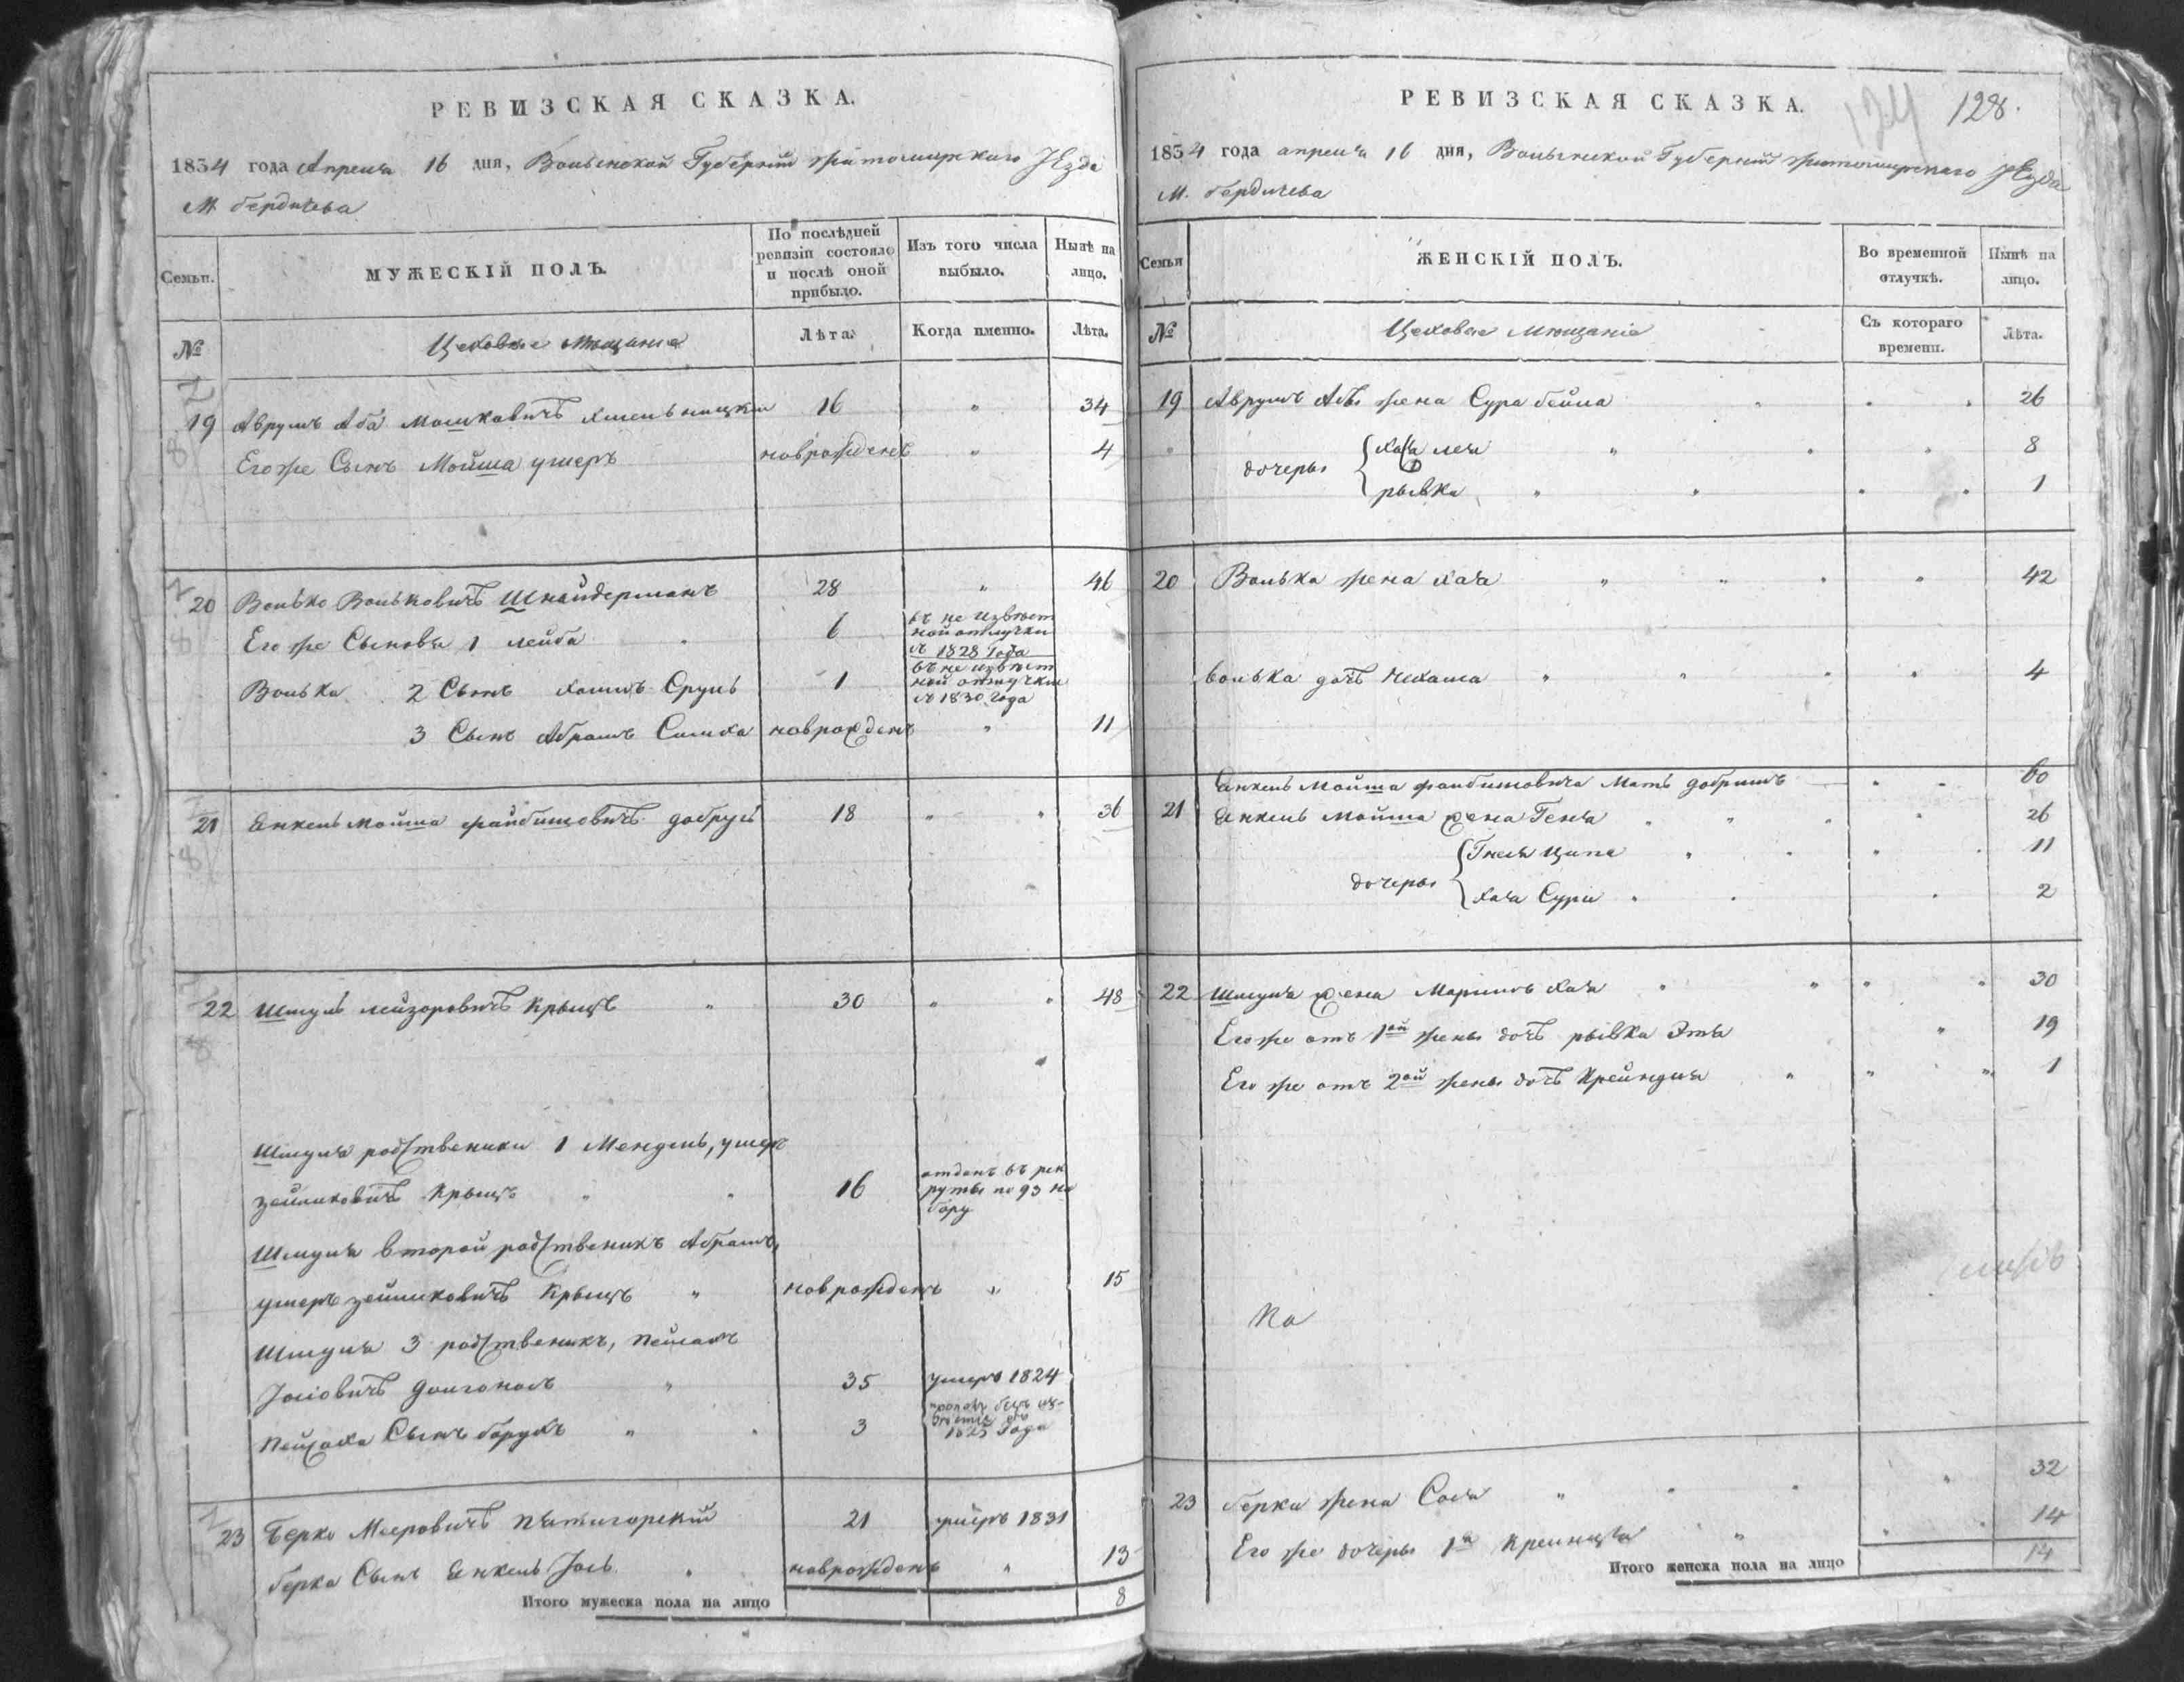 РЕВИЗСКАЯ СКАЗКА.
1834 года Апреля 16 дня, Волынской Губерніи Житомирского Уезда
М. бердичева
Семьи.
МУЖЕСКІЙ ПОЛЪ.
По послѣдней ревизіи состояло и послѣ оной прибыло.
Изъ того числа выбыло.
Нынѣ на лицо.
№
Цеховые Мещание
Лѣта.
Когда именно.
Лѣта.
19 Аврумъ Аба Мошковичъ хмельницкий 16 " 34
Его же Сынъ Мойша ушеръ новрожденъ " 4
20 Волько Вольковичъ Шнайдерманъ 28 " 46
Его же Сыновя 1 лейба 6 въ не извѣст
ной отлучки
съ 1828 года
Волька 2 Сынъ хаимъ Сруль 1 въ не извѣст
ной отлучки
съ 1830 года
3 Сынъ Абрамъ Симха новрожденъ " 11
21 Енкель мойша файбишовичъ 18 " " 36
22 Шмуль лейзоровичъ Крыцъ " 30 " " 48
Шмуля родственики 1 Мендель, ушеръ
зейликовичъ Крыцъ " " 16 отданъ въ рек
руты по 93 на
бору
Шмуля второй родственикъ Абрамъ,
ушеръ зейликовичъ Крыцъ " новрожденъ " 15
Шмуля 3 родственикъ, пейсахъ
Јосіовичъ долгоносъ " 35 умеръ 1824
Пейсаха Сынъ борухъ " " 3
1825 Года
23 Берко Мееровичъ пятигорскій 21 умеръ 1831
берка Сынъ Енкель Јось " новрожденъ " 13
Итого мужеска пола на лицо 8
РЕВИЗСКАЯ СКАЗКА.
124 128.
1834 года апреля 16 дня, Волынской Губерніи Житомирского Уезда
М. бердичева
Семьи
ЖЕНСКІЙ ПОЛЪ.
Во временной отлучкѣ.
Нынѣ на лицо.
№
Цеховые Мещаніе
Съ котораго времени.
Лѣта.
19 Аврумъ Абы жена Сура бейла " " " 26
" дочеры хая лея " " " 8
рывка " " " " 1
20 Волька жена хая " " " " 42
волька дочъ Нехама " " " " 4
Енкель Мойша файбишовича Мать добришъ " " 60
21 Енкель мойша жена Геня " " " " 26
дочеры Гнеся ципа " " " " 11
хая Сура " " " 2
22 Шмуля жена Марімъ хая " " " " 30
Его же отъ 1ой жены дочъ рывка Этя " 19
Его же отъ 2ой жены дочъ Крейндля " " " 1
На
23 берка жена Сося " " " " 32
Его же дочеры 1я Крейнцъя " " " 14
Итого женска пола на лицо 14